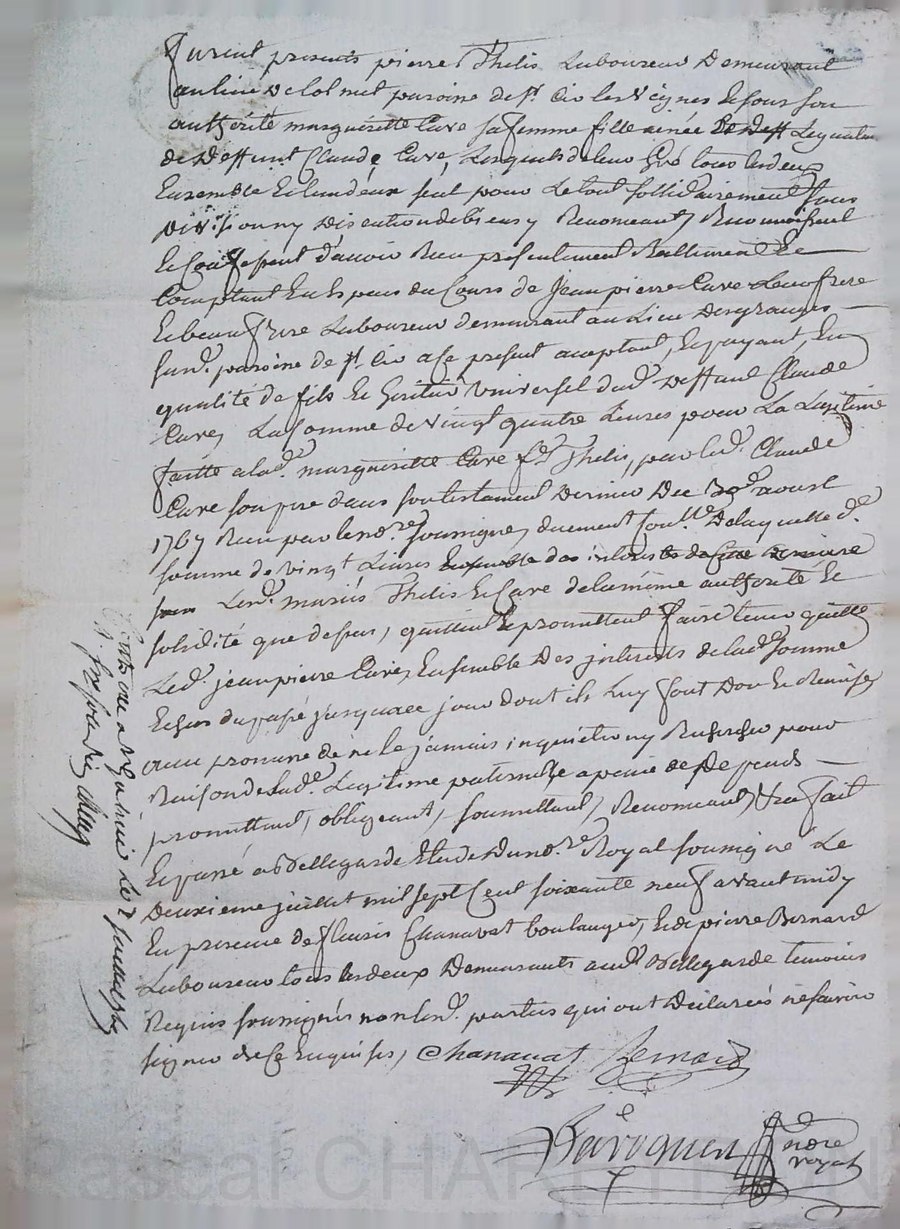 furent presents pierre Thelis Laboureur Demeurant
au lieu de paroine de st. Cir les Vignes et sous son
authorité marguerette Care sa femme fille ainée
de Deffunt Claude Care, lesquels de leur gré tous les deux
Ensemble et lun deux seul pour le tout sollidairement sans
division ny discution de biens y Renonceant, Reconnoissent
et Confessent d'avoir Reçu presentement Reellement et
Comptant En Especes du Cours de Jean pierre Care Leur frere
et beau frere Laboureur demeurant au Lieu Desgranges
susd. paroine de st. Cir a ce present aceptant, et payant, En
qualité de fils et heritier Universel dud. Deffunt Claude
Care, La somme de Vingt quatre Livres pour La Legitime
faitte a lad. marguerette Care fe. Thelis, par led. Claude
Care son pere dans son testament Dernier Du 30e aoust
1767 Reçu par le no.re soussigné, duement De laquelle d.
somme de vingt Livres
Les d. mariés Thelis et Care de la même authorité et
solidité que dessus, quittent et promettent faire tenir quitte
Led. jean pierre Care, Ensemble Des interets de lad. somme
Echus du passé jusqu'a ce jour dont ils luy font Don et Remise
avec promesse de ne le jamais inquietter ny Rechercher pour
Raison de lad. Legitime paternelle a peine de
promettant, obligeant, soumettant, Renonceant, &ca fait
Et passé a Bellegarde Etude Du no.re Royal soussigné Le
Deuxieme juillet mil sept Cent soixante neuf avant midy
En presence de fleuris Chanavat boulanger, et de pierre Bernard
Laboureur tous les deux Demeurants aud. Bellegarde temoins
Requis soussignés non les d. parties qui ont Declarées ne savoir
signer de ce Enquises, Chanavat Bernard
no.re
royal
Controllé a le 2 juillet 1769
Pascal CHAR